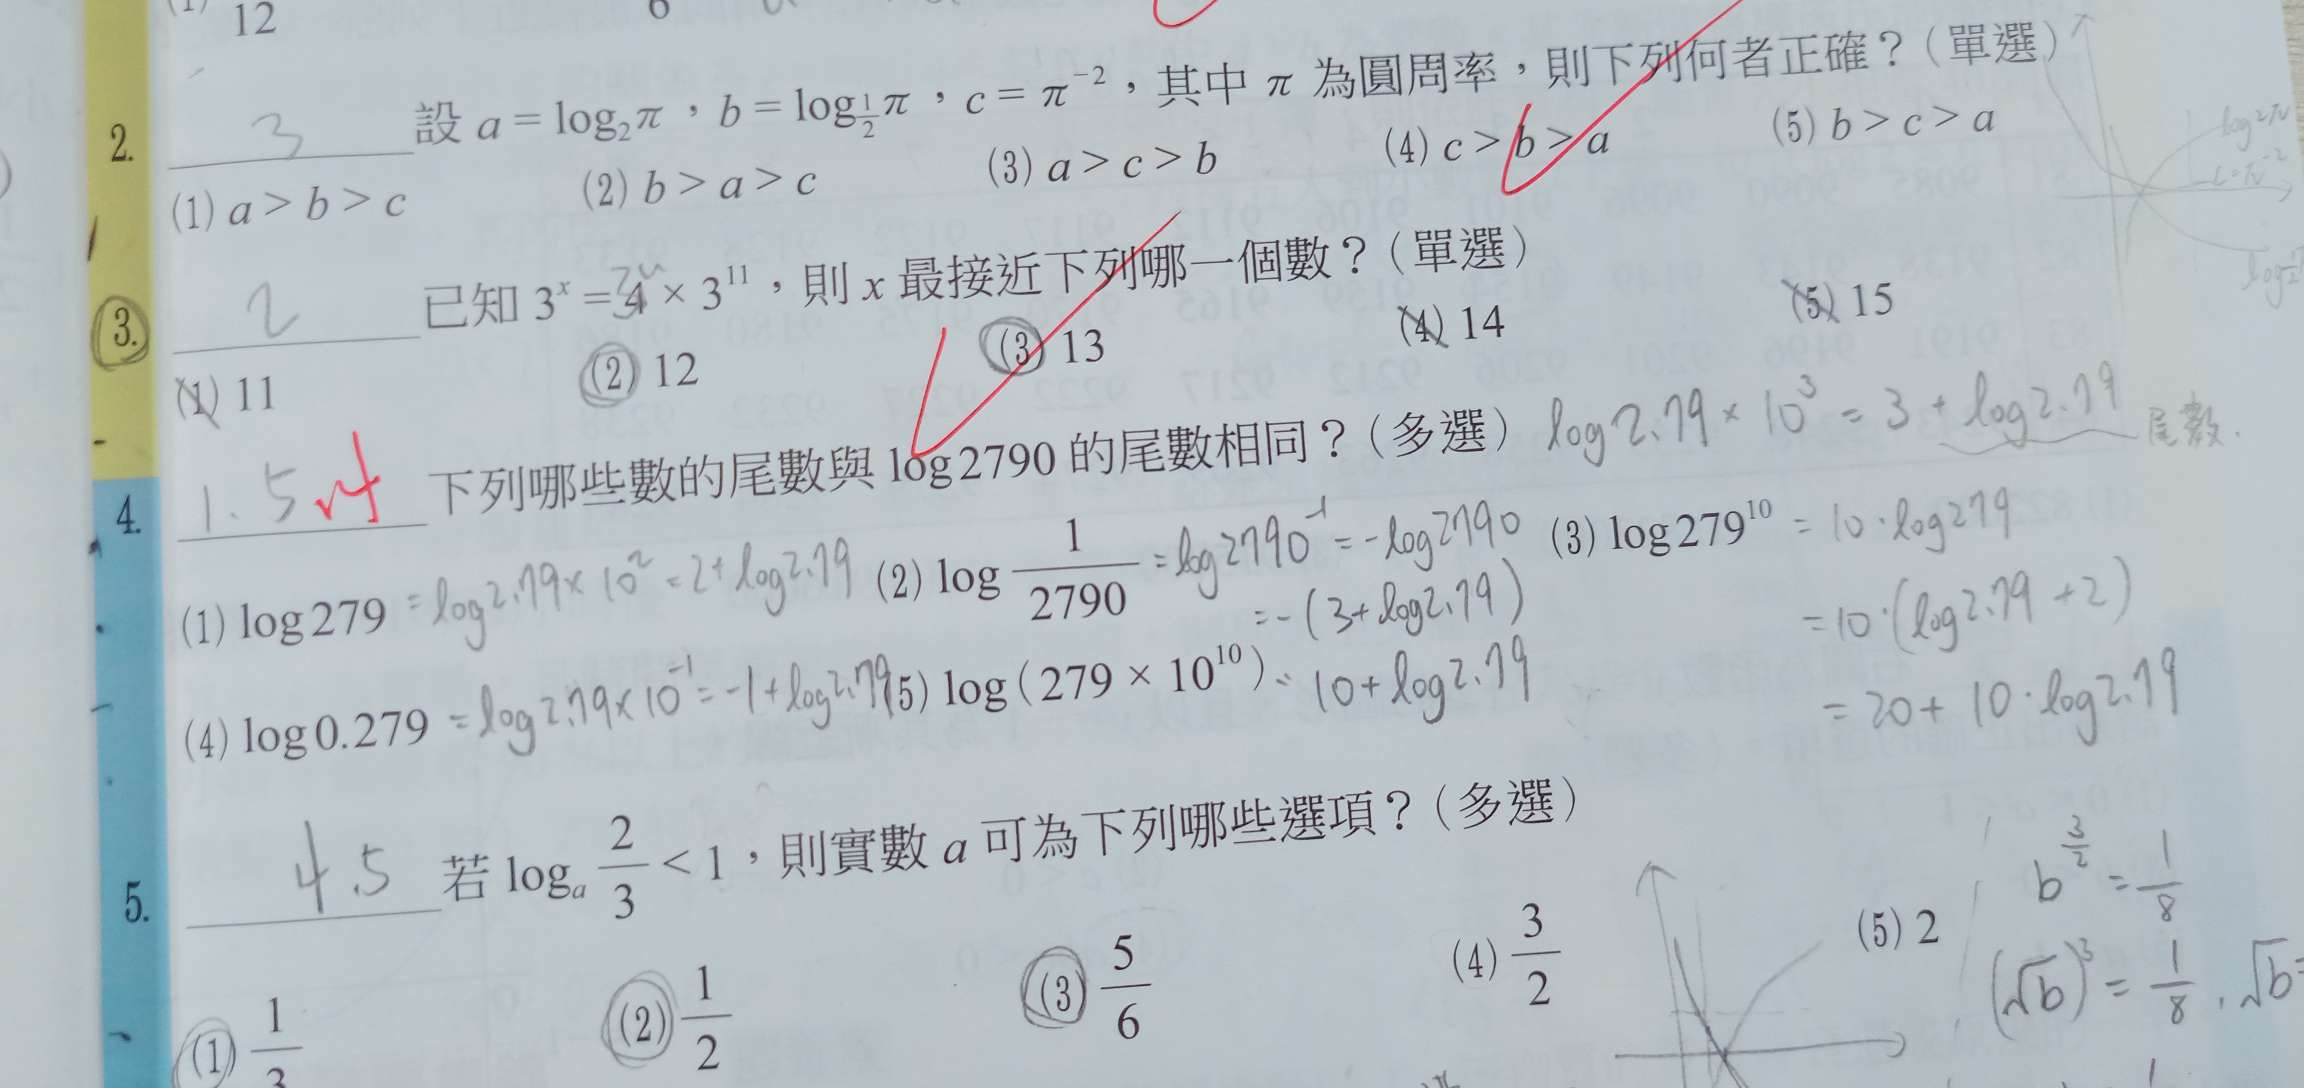 12
2. 3 設 a = log₂π，b = log_{1/2}π，c = π⁻²，其中 π 為圓周率，則下列何者正確？(單選)
(1) a > b > c (2) b > a > c (3) a > c > b (4) c > b > a (5) b > c > a
3. 2 已知 3ˣ = 4 × 3¹¹，則 x 最接近下列哪一個數？(單選)
(1) 11 (2) 12 (3) 13 (4) 14 (5) 15
log 2.79 × 10³ = 3 + log 2.79 尾數.
4. 1.5 下列哪些數的尾數與 log 2790 的尾數相同？(多選)
(1) log 279 = log 2.79 × 10² = 2 + log 2.79 (2) log 1/2790 = log 2790⁻¹ = -log 2790 (3) log 279¹⁰ = 10 · log 279
= -(3 + log 2.79) = 10 · (log 2.79 + 2)
(4) log 0.279 = log 2.79 × 10⁻¹ = -1 + log 2.79 5) log (279 × 10¹⁰) = 10 + log 2.79 = 20 + 10 · log 2.79
5. 4.5 若 logₐ 2/3 < 1，則實數 a 可為下列哪些選項？(多選)
(1) 1/3 (2) 1/2 (3) 5/6 (4) 3/2 (5) 2
b^{3/2} = 1/8
(√b)³ = 1/8 , √b =